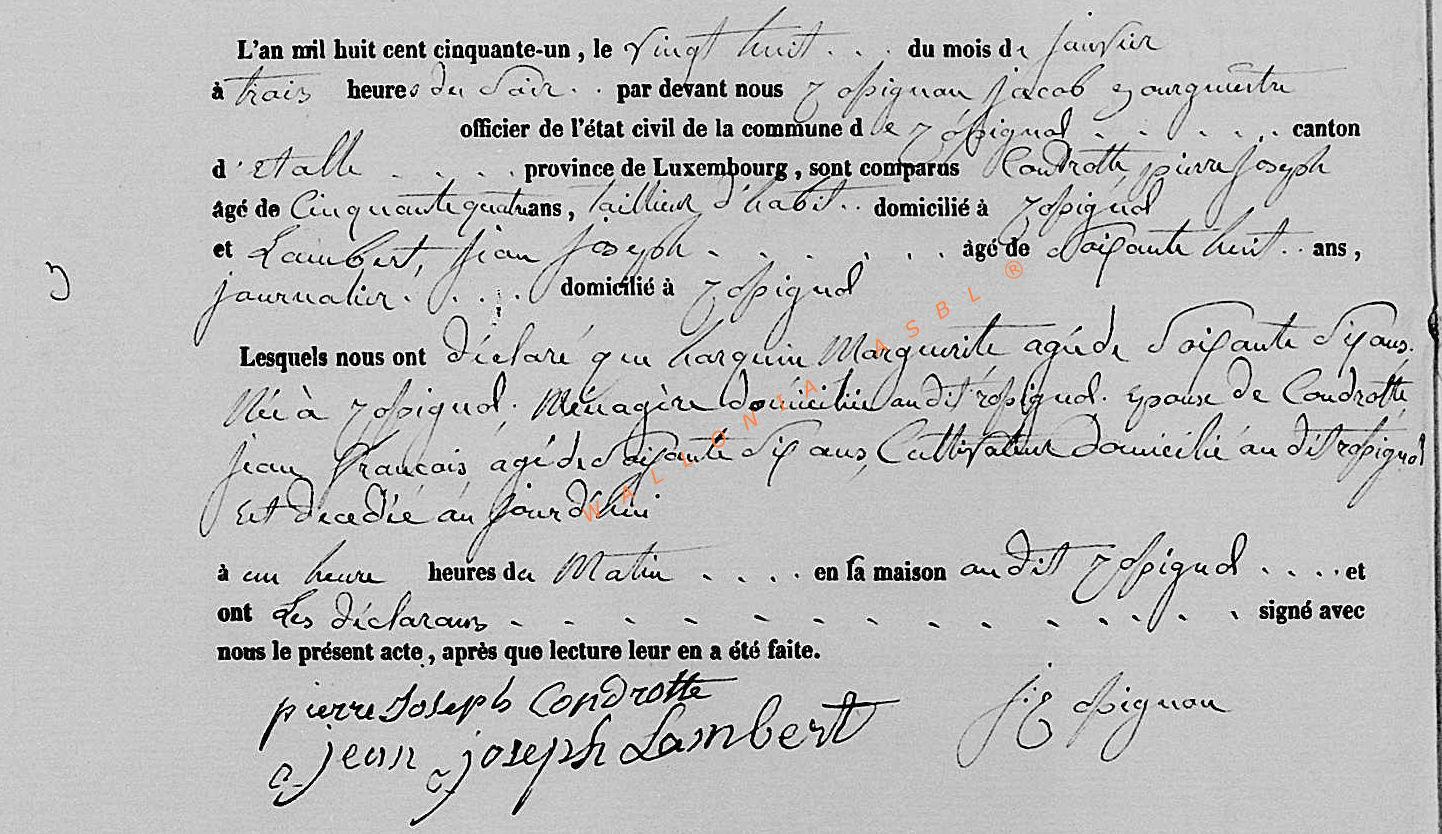 L'an mil huit cent cinquante-un, le Vingt huit . . . du mois de janvier
à trois heures du Soir . . par devant nous Rossignon jacob Bourgmestre
officier de l'état civil de la commune de Rossignol . . . . . . canton
d'Etalle . . . . . province de Luxembourg, sont comparus Condrotte, pierre joseph
âgé de Cinquante quatre ans, taillieur d'habit . . domicilié à Rossignol
et Lambert, jean joseph . . . . . . . âgé de Soixante huit . . ans,
journalier . . . . . domicilié à Rossignol
Lesquels nous ont déclaré que harquin Marguerite agée de Soixante Six ans.
Née à Rossignol. Ménagère domiciliée au dit rossignol. Epouse de Condrotte,
jean françois, agé de Soixante Six ans, Cultivateur domicilié au dit rossignol
Est décédée au jourd'hui
à un heure heures du Matin . . . . en sa maison au dit Rossignol . . . . et
ont Les déclarans . . . . . . . . . . . . . signé avec
nous le présent acte, après que lecture leur en a été faite.
pierre Joseph Condrotte
jean joseph Lambert
j: Rossignon
WALLONIA ASBL ®